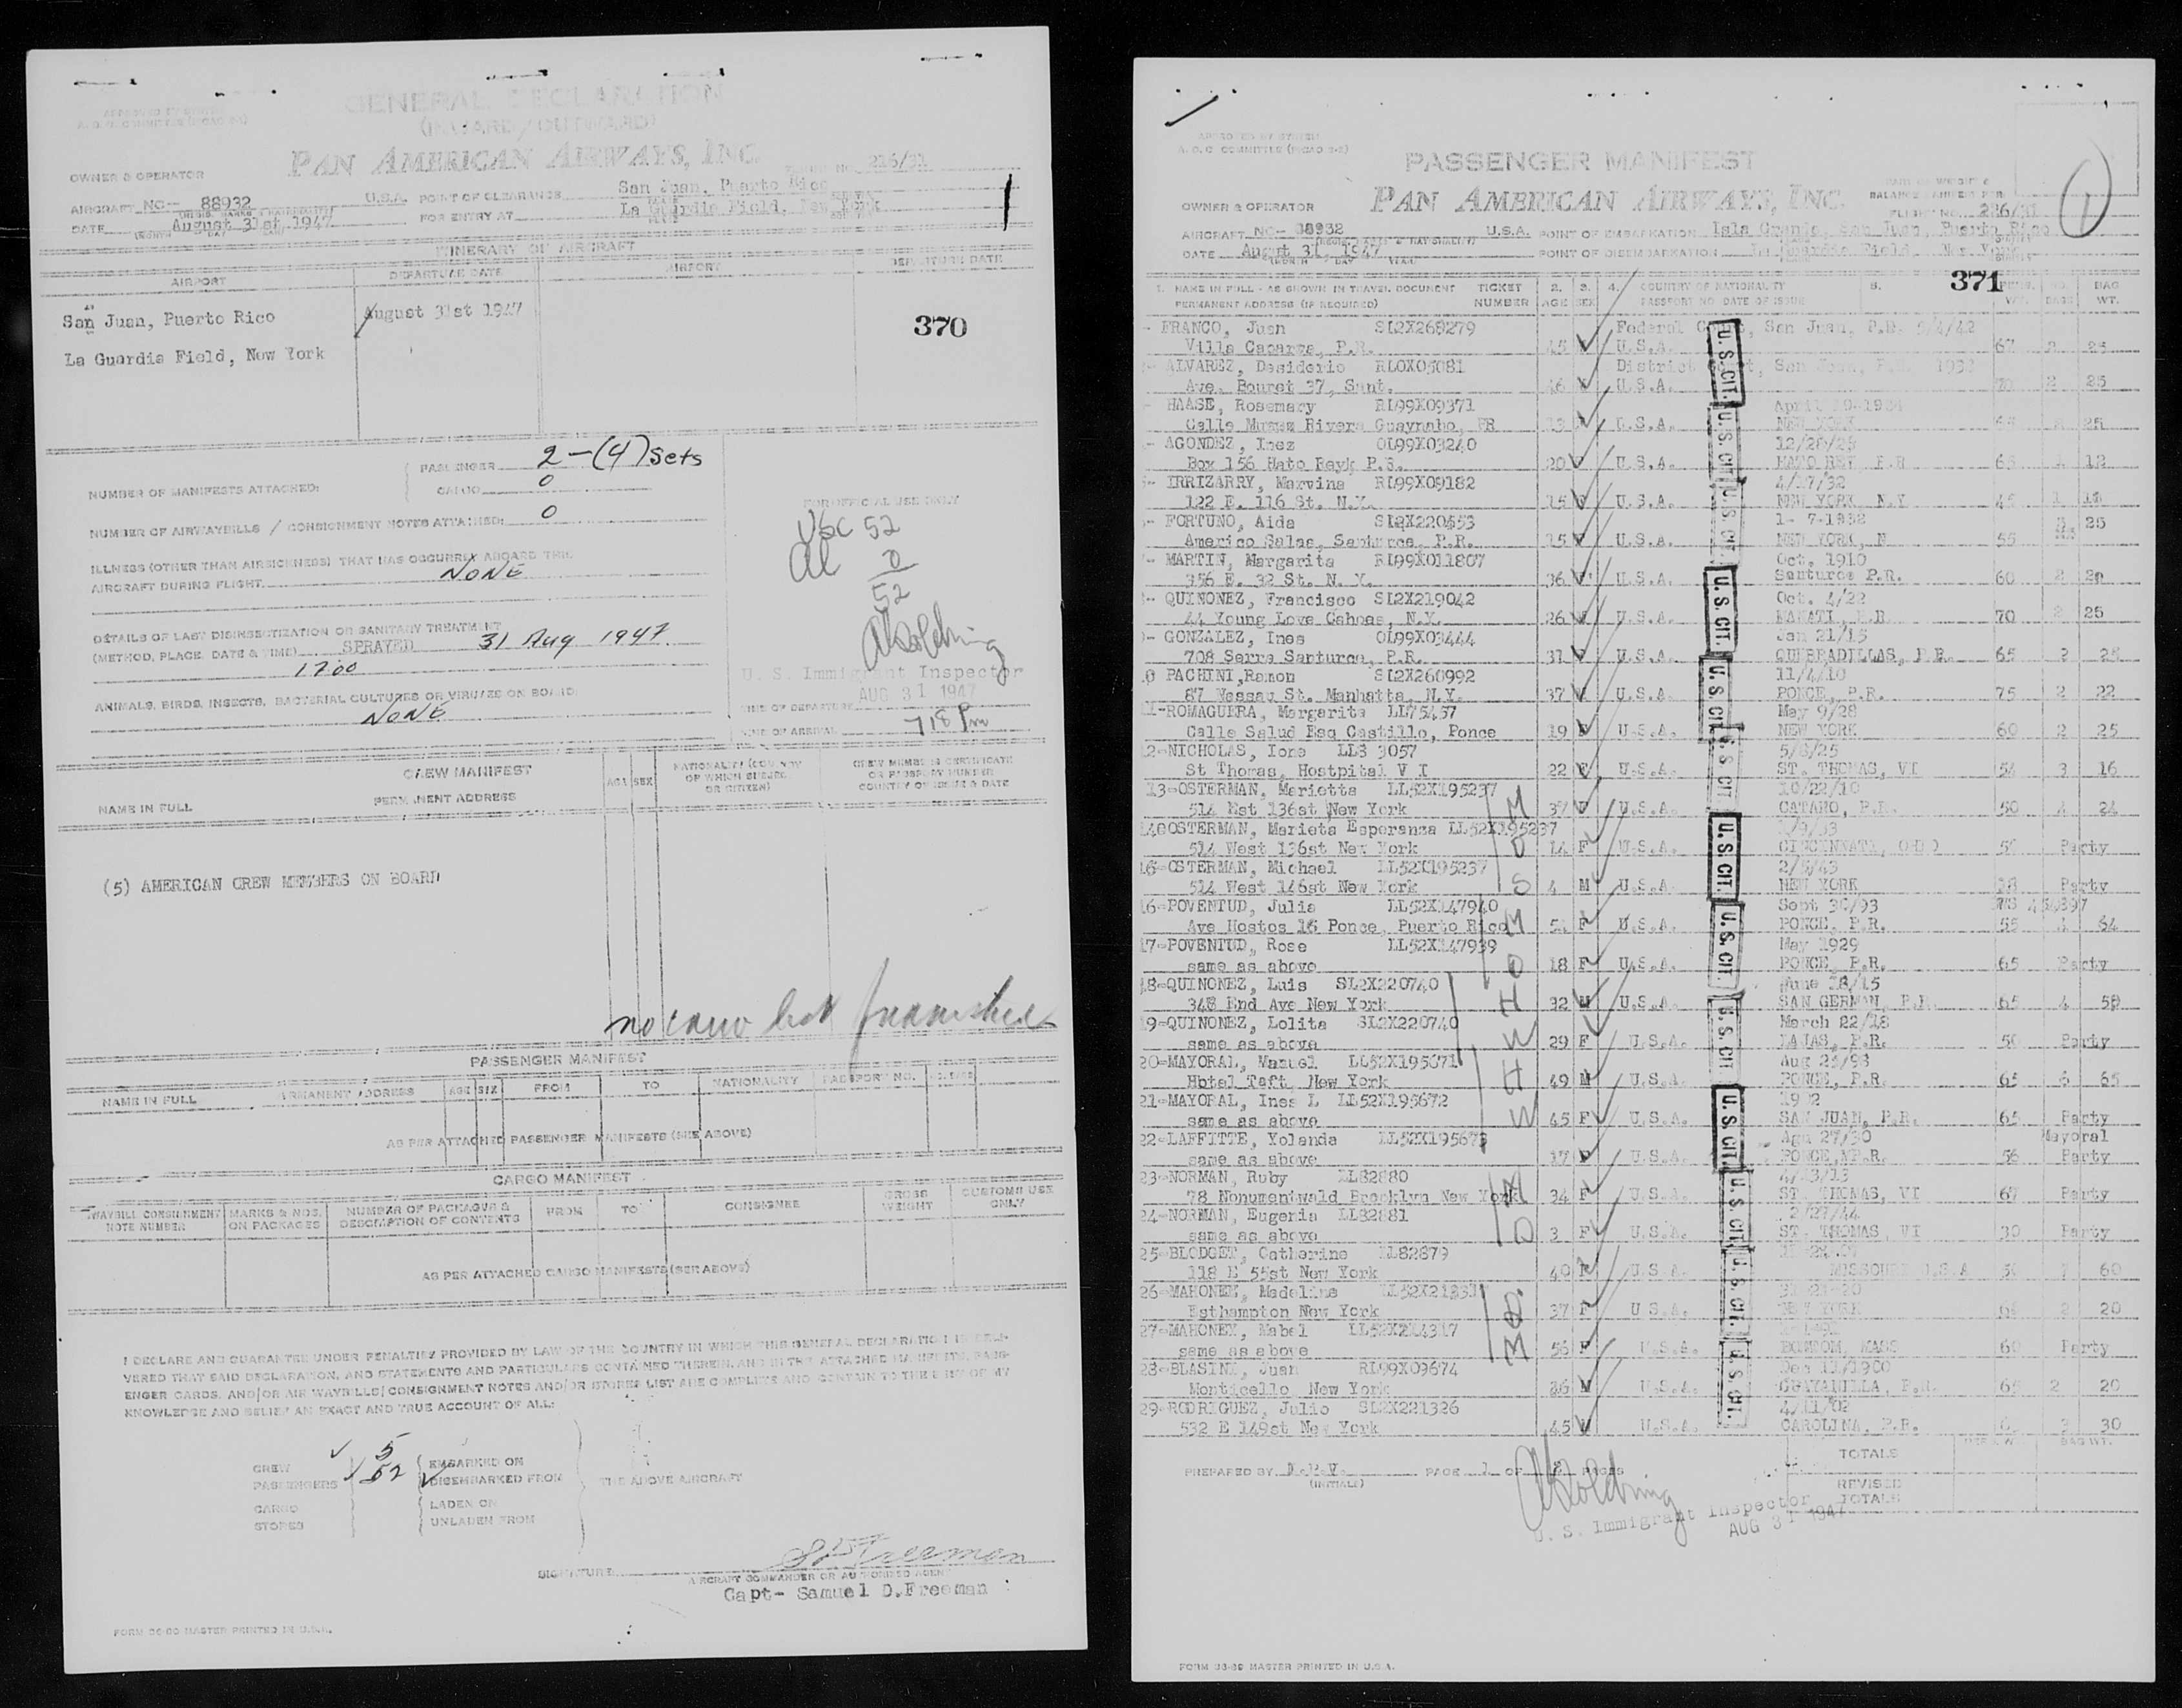 GENERAL DECLARATION
(INWARD / OUTWARD)
PAN AMERICAN AIRWAYS, INC.
OWNER & OPERATOR
FLIGHT NO. 216/31
AIRCRAFT NC- 88932 U.S.A. POINT OF CLEARANCE San Juan, Puerto Rico
DATE August 31st 1947 FOR ENTRY AT La Guardia Field, New York
ITINERARY OF AIRCRAFT
AIRPORT DEPARTURE DATE AIRPORT DEPARTURE DATE
San Juan, Puerto Rico August 31st 1947
370
La Guardia Field, New York
PASSENGER 2-(4) Sets
NUMBER OF MANIFESTS ATTACHED:
CARGO 0
NUMBER OF AIRWAYBILLS / CONSIGNMENT NOTES ATTACHED: 0
FOR OFFICIAL USE ONLY
USC 52
Al 0
52
ILLNESS (OTHER THAN AIRSICKNESS) THAT HAS OCCURRED ABOARD THIS
AIRCRAFT DURING FLIGHT NONE
DETAILS OF LAST DISINSECTIZATION OR SANITARY TREATMENT
(METHOD, PLACE, DATE & TIME) SPRAYED 31 Aug 1947
1700
U. S. Immigrant Inspector
AUG 31 1947
ANIMALS, BIRDS, INSECTS, BACTERIAL CULTURES OR VIRUSES ON BOARD:
NONE
TIME OF DEPARTURE
TIME OF ARRIVAL 718 Pm
CREW MANIFEST
NAME IN FULL PERMANENT ADDRESS AGE SEX NATIONALITY (COUNTRY OF WHICH SUBJECT OR CITIZEN) CREW MEMBERS CERTIFICATE OR PASSPORT NUMBER COUNTRY OF ISSUE & DATE
(5) AMERICAN CREW MEMBERS ON BOARD
PASSENGER MANIFEST
NAME IN FULL PERMANENT ADDRESS AGE SEX FROM TO NATIONALITY PASSPORT NO.
AS PER ATTACHED PASSENGER MANIFESTS (SEE ABOVE)
CARGO MANIFEST
WAYBILL CONSIGNMENT NOTE NUMBER MARKS & NOS. ON PACKAGES NUMBER OF PACKAGES & DESCRIPTION OF CONTENTS FROM TO CONSIGNEE GROSS WEIGHT CUSTOMS USE ONLY
AS PER ATTACHED CARGO MANIFESTS (SEE ABOVE)
I DECLARE AND GUARANTEE UNDER PENALTIES PROVIDED BY LAW OF THE COUNTRY IN WHICH THIS GENERAL DECLARATION IS DELI-
VERED THAT SAID DECLARATION, AND STATEMENTS AND PARTICULARS CONTAINED THEREIN, AND IN THE ATTACHED MANIFESTS, PASS-
ENGER CARDS, AND/OR AIR WAYBILLS/CONSIGNMENT NOTES AND/OR STORES LIST ARE COMPLETE AND CONTAIN TO THE BEST OF MY
KNOWLEDGE AND BELIEF AN EXACT AND TRUE ACCOUNT OF ALL:
CREW 5 EMBARKED ON
PASSENGERS 52 DISEMBARKED FROM THE ABOVE AIRCRAFT
CARGO LADEN ON
STORES UNLADEN FROM
SIGNATURE
AIRCRAFT COMMANDER OR AUTHORISED AGENT
Capt- Samuel D.Freeman
FORM 36-60 MASTER PRINTED IN U.S.A.
PASSENGER MANIFEST
1
PAN AMERICAN AIRWAYS, INC.
OWNER & OPERATOR
FLIGHT NO. 216/31
AIRCRAFT NC- 88932 U.S.A. POINT OF EMBARKATION Isla Grande, San Juan, Puerto Rico
DATE August 31, 1947 POINT OF DISEMBARKATION La Guardia Field, New York
371
1. NAME IN FULL - AS SHOWN IN TRAVEL DOCUMENT TICKET 2. 3. 4. COUNTRY OF NATIONALITY BAG
PERMANENT ADDRESS (IF REQUIRED) NUMBER AGE SEX PASSPORT NO DATE OF ISSUE WT. BAGS WT.
FRANCO, Juan SL2X268279 Federal Court, San Juan, P.R.
Villa Caparra, P.R. 45 U.S.A. 67 2 25
ALVAREZ, Desiderio RLOX05081 District Court, San Juan, P.R.
Ave. Bouret 37, Sant. 46 U.S.A. 70 2 25
HAASE, Rosemary RL99X09371
Calle Munoz Rivera Guaynabo, PR U.S.A. NEW YORK 25
AGONDEZ, Inez OL99X03240 12/20/26
Box 156 Hato Reyk P.R. 20 U.S.A. HATO REY P.R 12
IRRIZARRY, Marvina RL99X09182 4/17/32
122 E. 116 St. N.Y. 15 U.S.A. NEW YORK N.Y 45 1
FORTUNO, Aida SL2X220453 25
Americo Salas, Santurce, P.R. 15 U.S.A. NEW YORK, N 55
MARTIN, Margarita RL99X011807 Oct. 1910
356 E. 32 St. N. Y. 36 U.S.A. Santurce P.R. 60 2
QUINONEZ, Francisco SL2X219042 Oct. 4/22
44 Young Love Cahoas, N.Y. 26 U.S.A. MANATI, P.R. 70 2 25
GONZALEZ, Ines OL99X03444 Jan 21/15
708 Serra Santurce, P.R. 31 U.S.A. QUEBRADILLAS, P.R. 65 2 25
PACHINI,Ramon SL2X260992 11/4/10
87 Nassau St. Manhatta, N.Y. 37 U.S.A. PONCE, P.R. 75 2 22
ROMAGUERA, Margarita LL75457 May 9/28
Calle Salud Esq Castillo, Ponce 19 U.S.A. NEW YORK 60 2 25
12-NICHOLAS, Ione LL8 3057
St Thomas, Hostpital V I 22 F U.S.A. ST. THOMAS, VI 54 3 16
13-OSTERMAN, Marietta LL52X195237 10/22/10
514 Est 136st New York 37 F U.S.A. CATANO, P.R. 50 4 24
M
14-OSTERMAN, Marieta Esperanza LL52X195237
514 West 136st New York 14 F U.S.A. CINCINNATI, OHIO Party
D
OSTERMAN, Michael LL52X195237 2/5/43
514 West 146st New York 4 M U.S.A. NEW YORK Party
S
16-POVENTUD, Julia LL52X147940 Sept 30/93
Ave Hostos 16 Ponce, Puerto Rico F U.S.A. PONCE, P.R. 55 4 64
M
17-POVENTUD, Rose LL52X147939 May 1929
same as above 18 F U.S.A. PONCE, P.R. 65 Party
D
18-QUINONEZ, Luis SL2X220740 June 18/15
348 End Ave New York 32 M U.S.A. SAN GERMAN, P.R. 65 4 58
H
19-QUINONEZ, Lolita SL2X220740 March 22/18
same as above 29 F U.S.A. LAJAS, P.R. 50 Party
W
20-MAYORAL, Manuel LL52X195671
Hotel Taft, New York 49 M U.S.A. PONCE, P.R. 65 6 65
H
21-MAYORAL, Ines L LL52X195672
same as above 45 F U.S.A. SAN JUAN, P.R. 65 Party
W
22-LAFFITTE, Yolanda Mayoral
same as above 17 F U.S.A. PONCE, P.R. 56 Party
23-NORMAN, Ruby LL82880 4/13/13
78 Nonumentwald Brooklyn New York 34 F U.S.A. ST. THOMAS, VI 67 Party
M
24-NORMAN, Eugenia LL82881 2/27/44
same as above 3 F U.S.A. ST. THOMAS VI 30 Party
D
25-BLODGET, Catherine LL82879
118 E 55st New York 40 F U.S.A. MISSOURI U.S.A 60
26-MAHONEY, Madeline
Esthampton New York 37 F U.S.A. NEW YORK 2 20
D
27-MAHONEY, Mabel LL52X214317
same as above 56 F U.S.A. BOSTON, MASS 60 Party
M
28-BLASINI, Juan RL99X09674
Monticello New York M U.S.A. GUAYANILLA, P.R. 65 2 20
29-RODRIGUEZ, Julio SL2X221326 4/11/02
532 E 149st New York 45 U.S.A. CAROLINA, P.R. 30
U.S. CIT.
PREPARED BY PAGE 1 OF PAGES
(INITIALS)
TOTALS
REVISED TOTALS
U. S. Immigrant Inspector
AUG 31 1947
FORM 36-59 MASTER PRINTED IN U.S.A.